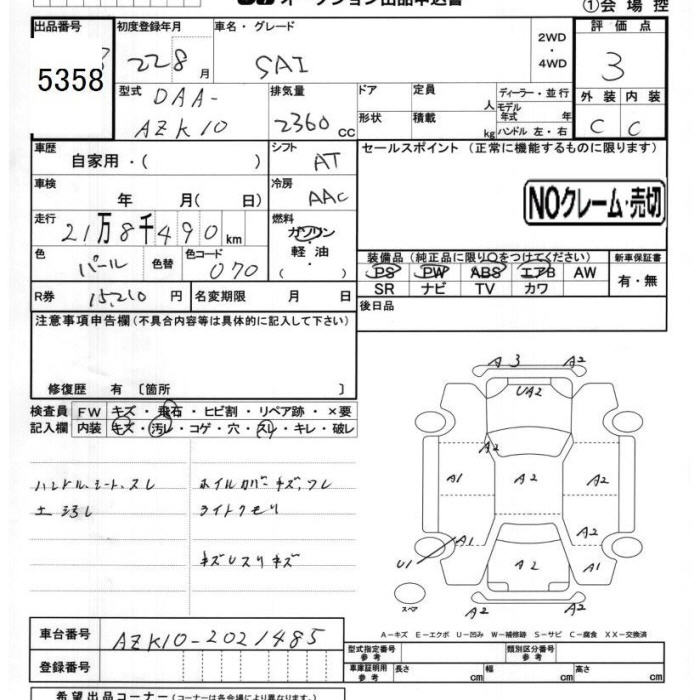 オークション出品申込書
①会場控
出品番号 初度登録年月 車名・グレード 評価点
5358 22 8月 SAI 2WD・4WD 3
型式 DAA-AZK10 排気量 2360cc ドア 定員 人 ディーラー・並行 外装 内装
形状 積載 kg モデル年式 年 ハンドル 左・右 C C
車歴 自家用・( ) シフト AT セールスポイント (正常に機能するものに限ります)
車検 年 月( 日) 冷房 AAC
NOクレーム・売切
走行 21万8千490km 燃料 ガソリン・軽油・( )
色 パール 色替 色コード 070
装備品(純正品に限り○をつけてください) 新車保証書
PS PW ABS エアB AW 有・無
SR ナビ TV カワ
R券 15,210円 名変期限 月 日 後日品
注意事項申告欄(不具合内容等は具体的に記入して下さい)
修復歴 有〔箇所 〕
検査員 FW キズ・飛石・ヒビ割・リペア跡・×要
記入欄 内装 キズ・汚レ・コゲ・穴・スレ・キレ・破レ
ハンドル、シート、スレ ホイルカバーキズ、ワレ
土汚レ ライトクモリ
キズ、スリキズ
A3 A2
UA2
A2
A1 A2 A2
A2
U1 A1 A2 A1
A2 A2
スペア
A−キズ E−エクボ U−凹み W−補修跡 S−サビ C−腐食 XX−交換済
車台番号 AZK10-2021485 型式指定番号 参考 類別区分番号 参考
登録番号 車庫証明用 参考 長さ cm 幅 cm 高さ cm
希望出品コーナー(コーナー名は各会場により異なります。)